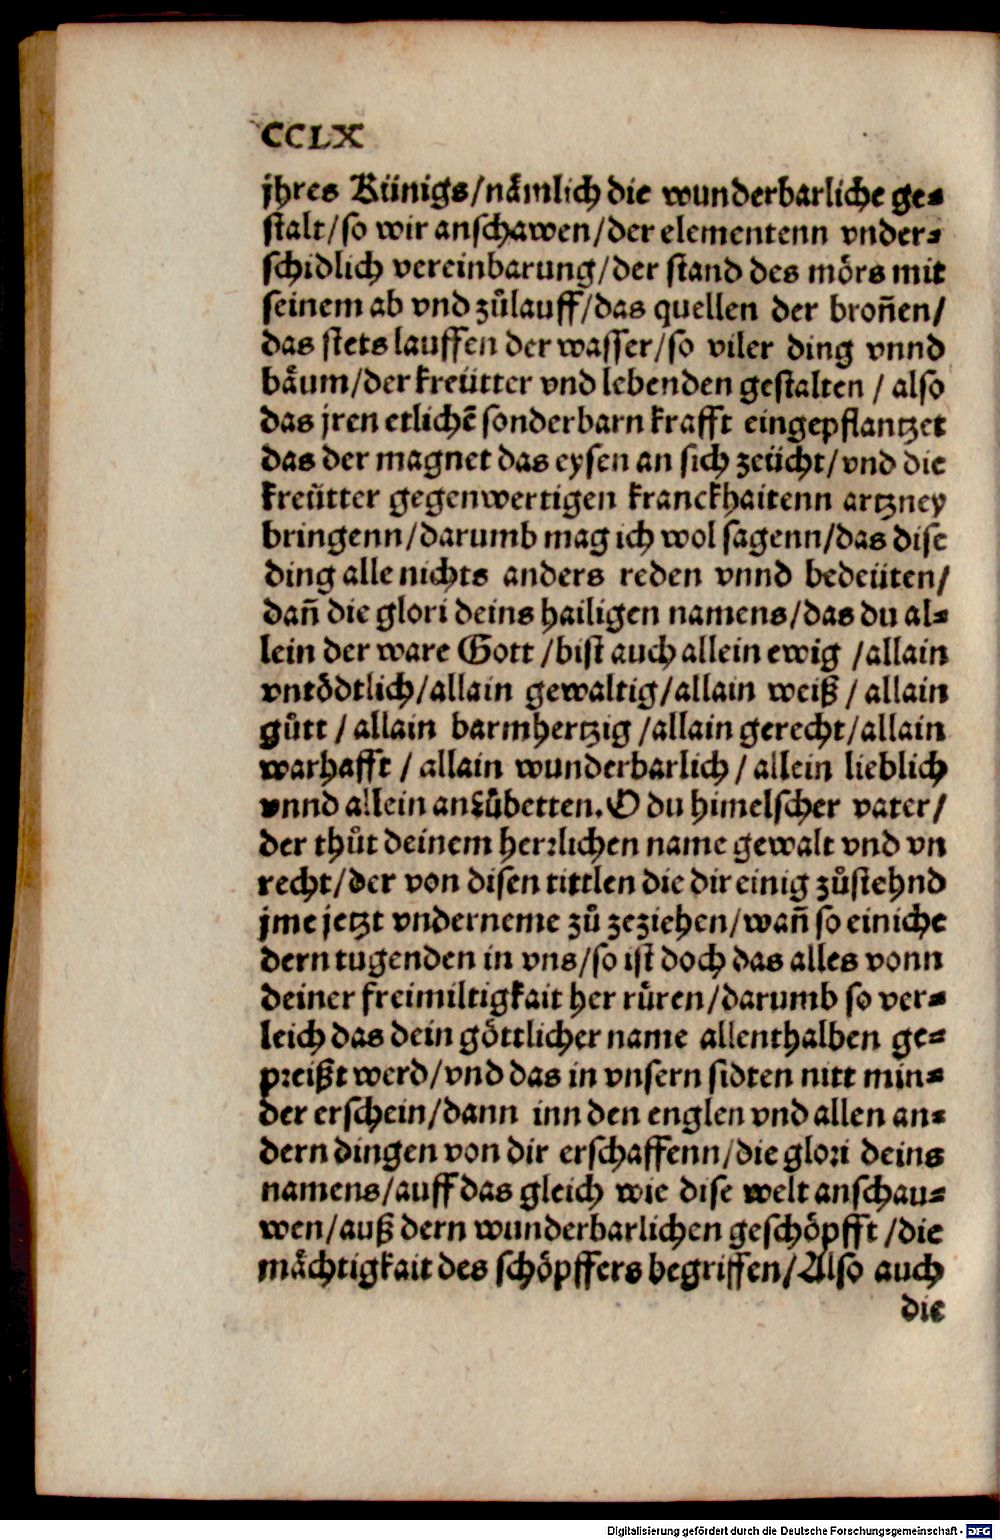 CCLX
jhres Künigs/nämlich die wunderbarliche ge⸗
stalt/so wir anschawen/der elementenn vnder⸗
schidlich vereinbarung/der stand des mörs mit
seinem ab vnd zůlauff/das quellen der brοñen/
das stets lauffen der wasser/so viler ding vnnd
bäum/der kreütter vnd lebenden gestalten / also
das jren etlichē sonderbarn krafft eingepflantzet
das der magnet das eysen an sich zeücht/vnd die
kreütter gegenwertigen kranckhaitenn artzney
bringenn/darumb mag ich wol sagenn/das dise
ding alle nichts anders reden vnnd bedeüten/
dañ die glori deins hailigen namens/das du al⸗
lein der ware Gott /bist auch allein ewig /allain
vntödtlich/allain gewaltig/allain weiß / allain
gůtt / allain barmhertzig /allain gerecht/allain
warhafft / allain wunderbarlich / allein lieblich
vnnd allein anzůbetten. O du himelscher vater/
der thůt deinem herrlichen name gewalt vnd vn
recht/der von disen tittlen die dir einig zůstehnd
jme jetzt vnderneme zů zeziehen/wañ so einiche
dern tugenden in vns/so ist doch das alles vonn
deiner freimiltigkait her růren/darumb so ver⸗
leich das dein göttlicher name allenthalben ge⸗
preißt werd/vnd das in vnsern sidten nitt min⸗
der erschein/dann inn den englen vnd allen an⸗
dern dingen von dir erschaffenn/die glori deins
namens/auff das gleich wie dise welt anschau⸗
wen/auß dern wunderbarlichen geschöpfft /die
mächtigkait des schöpffers begriffen/Also auch
die
Digitalisierung gefördert durch die Deutsche Forschungsgemeinschaft - DFG